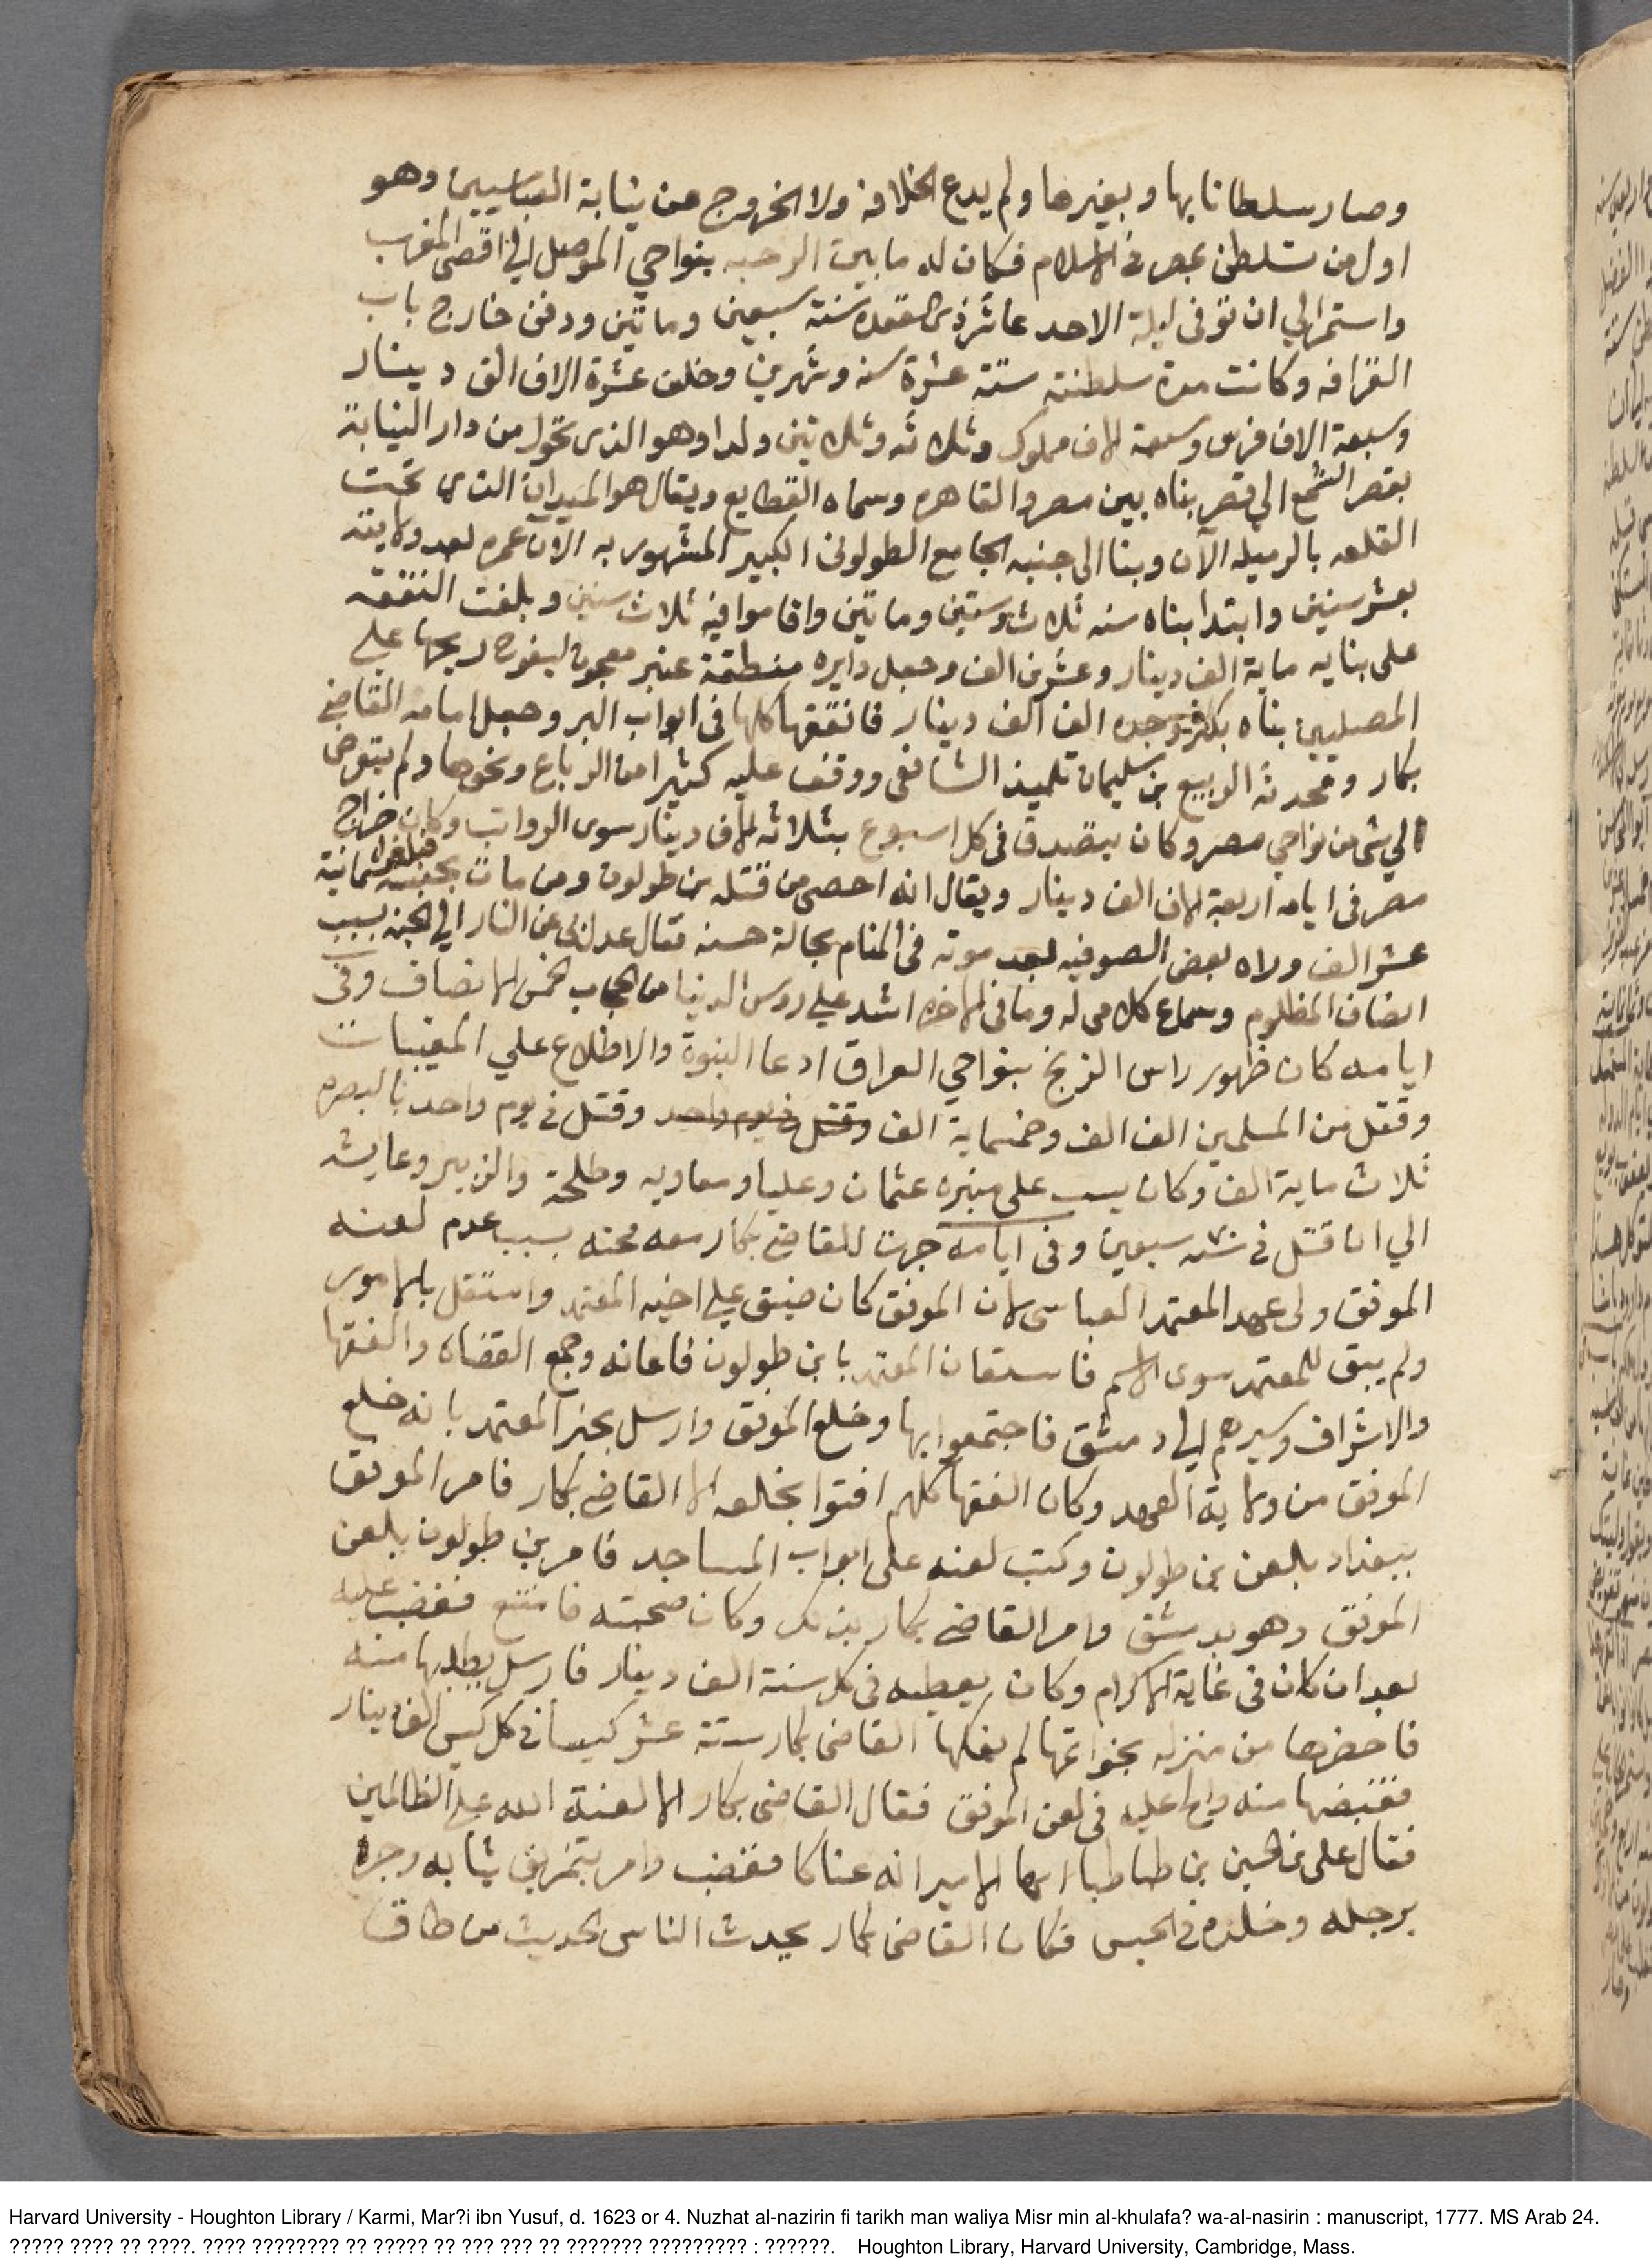 وصار سلطانا بها وبغيرها ولم يدع الخلافه ولا الخروج عن نيابة العباسيين وهو
اول من تسلطن بمصر في الاسلام فكان له ما بين الرحبه بنواحي الموصل الي اقصى المغرب
واستمر الي ان توفى ليلة الاحد عاشر ذى القعده سنة سبعين وماتين ودفن خارج باب
القرافه وكانت مدة سلطنته ستة عشرة سنه وشهرين وخلف عشرة الاف الف دينار
وسبعة الاف فرس وسبعة الاف مملوك وثلاثه وثلاثين ولدا وهو الذى تحول من دار النيابة
بقصر الشمع الي قصر بناه بين مصر والقاهره وسماه القطايع ويقال هو الميدان الذي تحت
القلعه بالرميله الآن وبنا الى جنبه الجامع الطولونى الكبير المشهور به الآن عمره بعد ولايته
بعشر سنين وابتدا بناه سنه ثلاث وستين وماتين واقاموا فيه ثلاث سنين وبلغت النفقه
على بنايه ماية الف دينار وعشرين الف وجعل دايره منطقة عنبر معجون ليفوح ريحها علي
المصليين بناه بكنز وجده الف الف دينار فانفقها كلها فى ابواب البر وجعل امامه القاضي
بكار ومحدثه الربيع بن سليمان تلميذ الشافعى ووقف عليه كثيرا من الرباع ونحوها ولم يتعرض
الي شى من نواحي مصر وكان يتصدق فى كل اسبوع بثلاثه الاف دينار سوى الرواتب وكان خراج
مصر فى ايامه اربعة الاف الف دينار ويقال انه احصى من قتله بن طولون ومن مات بحبسه فبلغوا ثمانية
عشر الف وراه بعض الصوفيه بعد موته فى المنام بحالة حسنه فقال عدل بى عن النار الي الجنه بسبب
انصاف المظلوم وسماع كلامى له وما فى الاخره اشد علي روس الدنيا من الحجاب الانصاف وفى
ايامه كان ظهور راس الزنج بنواحي العراق ادعا النبوة والاطلاع علي المغيبات
وقتل من المسلمين الف الف وخمسماية الف وقتل فى يوم واحد وقتل فى يوم واحد بالبصره
ثلاث ماية الف وكان يسب على منبره عثمان وعليا ومعاويه وطلحة والزبير وعايشه
الي ان قتل في سنه سبعين وفى ايامه جرت للقاضى بكار معه محنه بسبب عدم لعنه
الموفق ولى عهد المعتمد العباسى لان الموفق كان ضيق علي اخيه المعتمد واستقل بالامور
ولم يبق للمعتمد سوى الاسم فاستعان المعتمد بابن طولون فاعانه وجمع القضاه والفقها
والاشراف وسيرهم الي دمشق فاجتمعوا بها وخلع الموفق وارسل بخبر المعتمد بانه خلع
الموفق من ولاية العهد وكان الفقها كلهم افتوا بخلعه الا القاضى بكار فامر الموفق
ببغداد بلعن بن طولون وكتب لعنه على ابواب المساجد فامر بن طولون بلعن
الموفق وهو بدمشق وامر القاضى بكار بذلك وكان صحبته فامتنع فغضب عليه
بعد ان كان فى غاية الاكرام وكان يعطيه فى كل سنة الف دينار فارسل يطلبها منه
فاحضرها من منزله بخواتمها لم يفكها القاضى بكار ستة عشر كيسا فى كل كيس الف دينار
فقبضها منه والح عليه فى لعن الموفق فقال القاضى بكار الا لعنة الله علي الظالمين
فقال على بن الحسين بن طباطبا ايها الامير انه عناكا فغضب وامر بتمزيق ثيابه وجره
برجله وخلده فى الحبس فكان القاضى بكار يحدث الناس الحديث من طاق
Harvard University - Houghton Library / Karmi, Mar?i ibn Yusuf, d. 1623 or 4. Nuzhat al-nazirin fi tarikh man waliya Misr min al-khulafa? wa-al-nasirin : manuscript, 1777. MS Arab 24.
????? ???? ?? ????. ???? ???????? ?? ????? ?? ??? ??? ?? ??????? ????????? : ??????. Houghton Library, Harvard University, Cambridge, Mass.